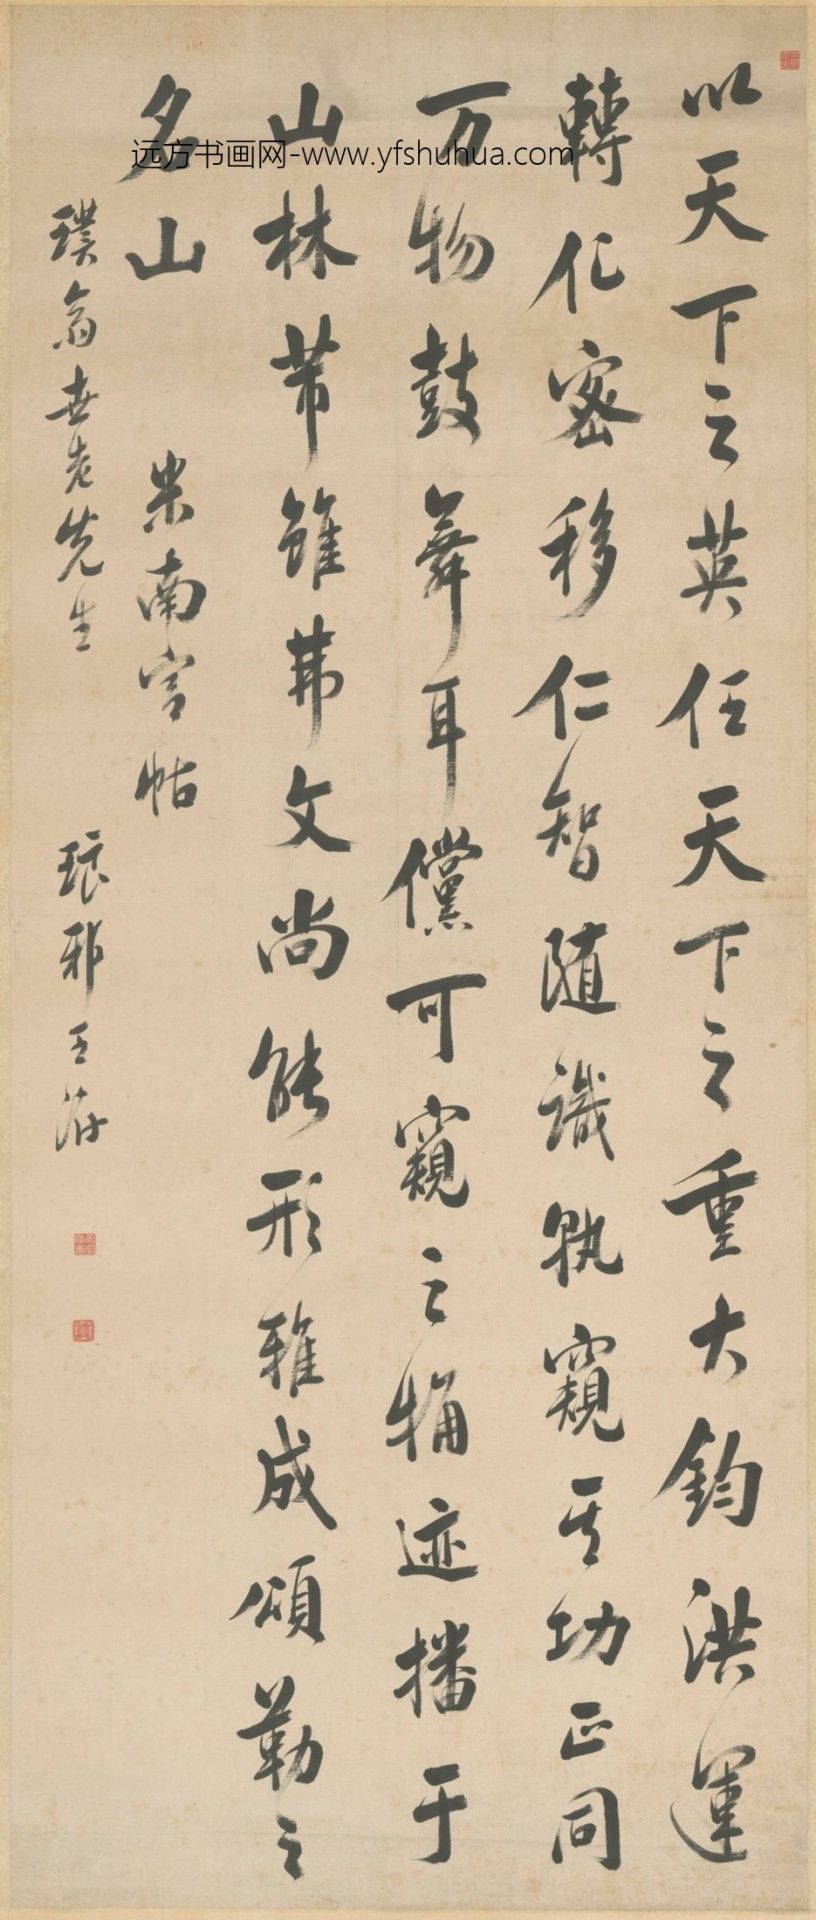 以天下之英任天下之重大鈞洪運
轉化密移仁智随識孰窺其功正同
万物鼓舞耳儻可窺之粗迹播于
山林芾雖弗文尚能形雅成頌勒之
名山
米南宫帖
璞翁世老先生
琅邪王澍
远方书画网-www.yfshuhua.com